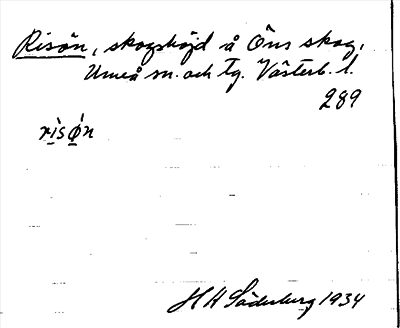 Risön, skogshöjd å Öns skog,
Umeå sn. och tg. Västerb. l.
289
rìsǿn
H H Söderberg 1934